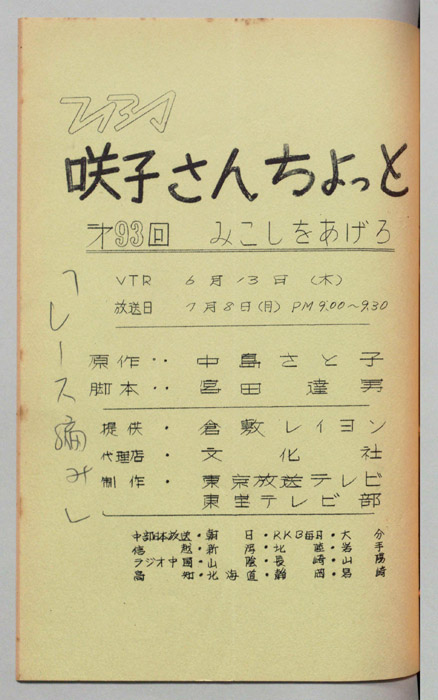 TBS
咲子さんちょっと
才93回 みこしをあげろ
VTR 6月13日(木)
放送日 7月8日(月) PM9.00〜9.30
原作‥ 中島さと子
脚本‥ 宮田達男
提供・ 倉敷レイヨン
代理店・ 文化社
制作・ 東京放送テレビ
東宝テレビ部
中部日本放送・朝日・RKB毎日・大分
信越・新潟・北陸・岩手
ラジオ中国・山陰・長崎・山陽
高知・北海道・静岡・宮崎